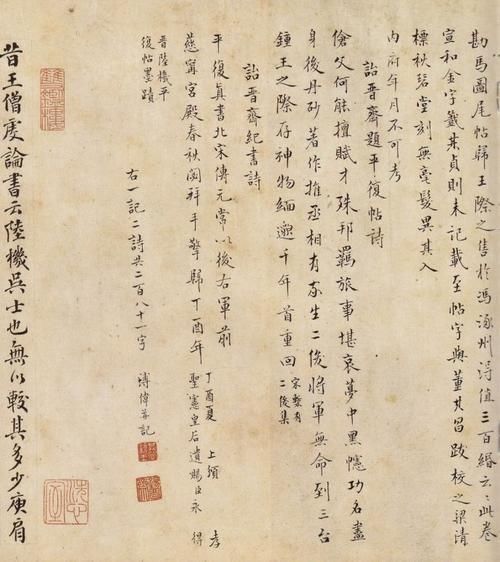 勘馬圖尾帖歸王際之售於馮涿州得值三百緡云云此卷
宣和金字籤朱貞則未記載至帖字與董其昌跋校之梁清
標秋碧堂刻無毫髮異其入
內府年月不可考
詒晉齋題平復帖詩
傖父何能擅賦才殊邦羈旅事堪哀夢中黑幰功名盡
身後丹砂著作推丞相有哀生二俊將軍無命到三台
鍾王之際存神物緬邈千年首重回
宋槧有
二俊集
詒晉齋紀書詩
平復真書北宋傳元常以後右軍前
慈寧宮殿春秋閟拜手擎歸丁酉年
丁酉夏上頒孝
聖憲皇后遺賜臣永得
晉陸機平
復帖墨蹟
右一記二詩共二百八十一字
溥偉并記
昔王僧虔論書云陸機吳士也無以較其多少庾肩